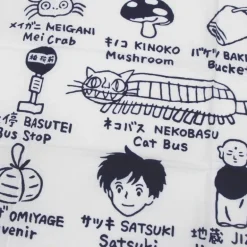 メイガニ MEIGANI
Mei Crab
キノコ KINOKO
Mushroom
バケツ
Bucke
停 BASUTEI
Bus Stop
ネコバス NEKOBASU
Cat Bus
OMIYAGE
venir
サツキ SATSUKI
Satsuki
地蔵